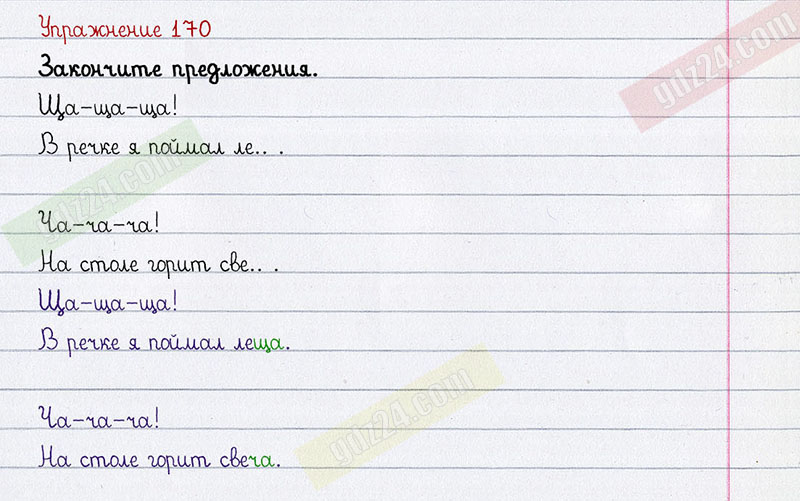 Упражнение 170
Закончите предложения.
Ща-ща-ща!
В речке я поймал ле.. .
Ча-ча-ча!
На столе горит све.. .
Ща-ща-ща!
В речке я поймал леща.
Ча-ча-ча!
На столе горит свеча.
gdz24.com
gdz24.com
gdz24.com